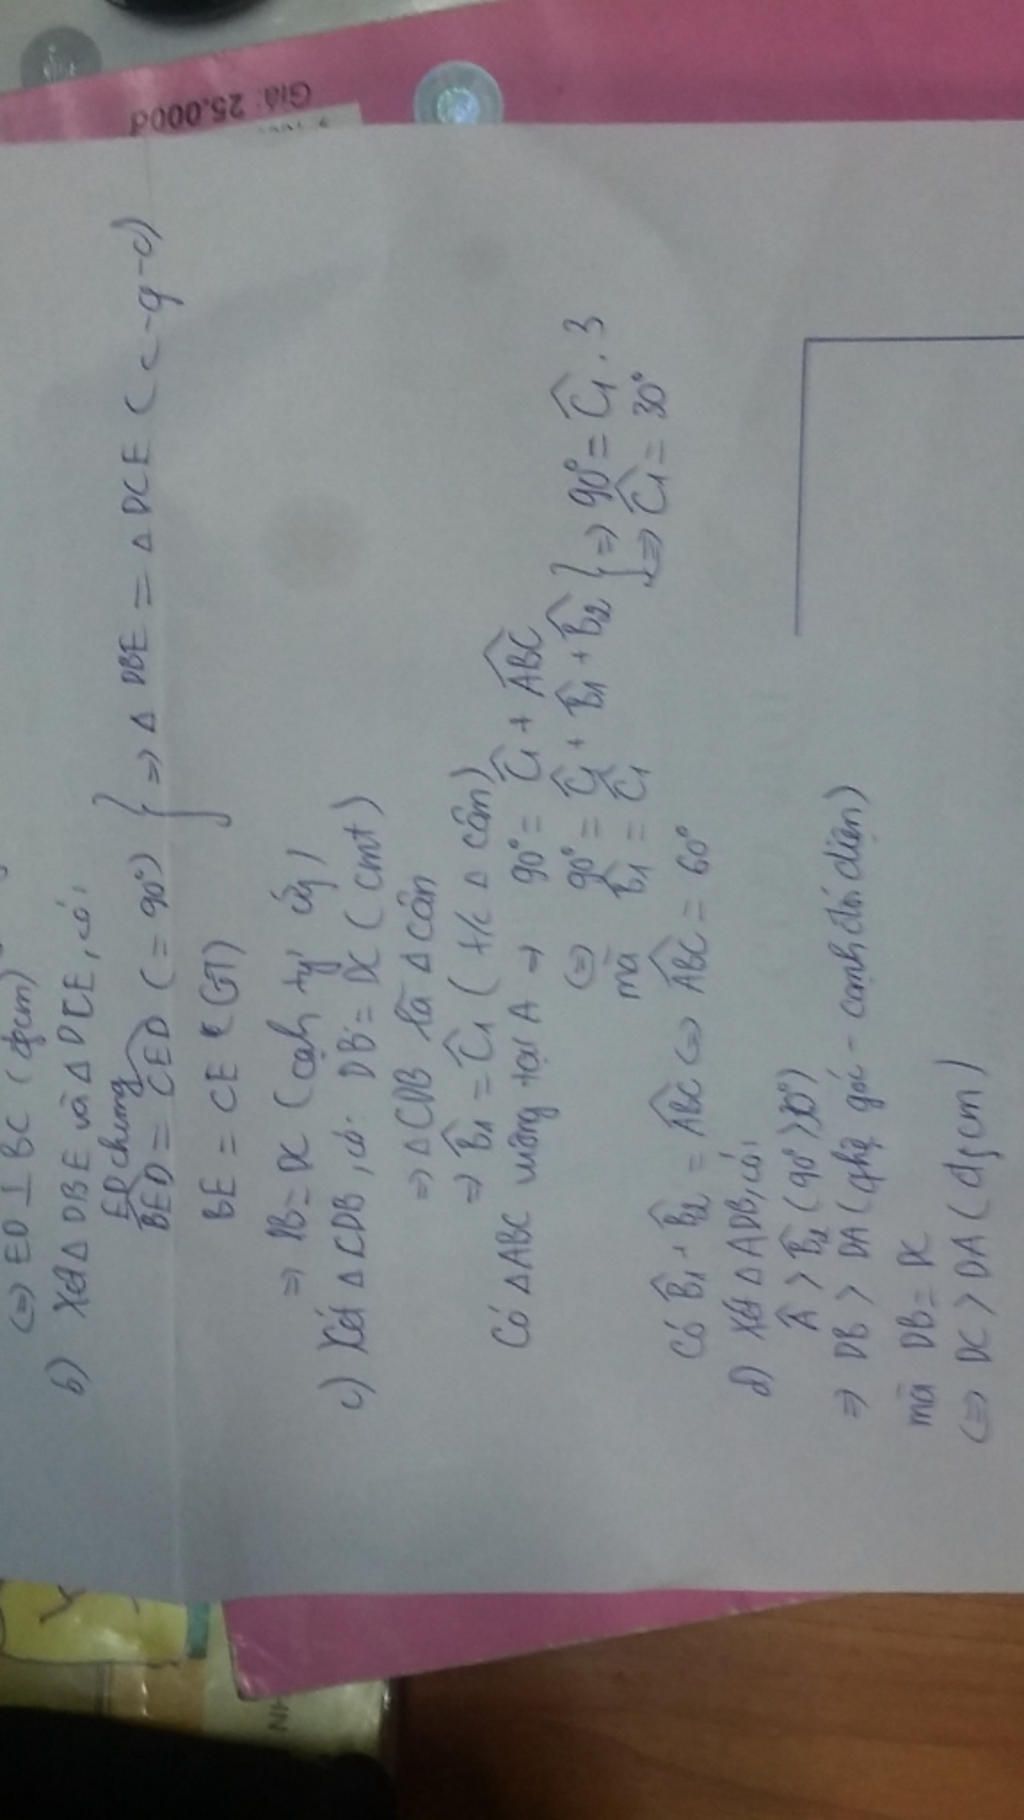 (=) ED ⊥ BC (đpcm)
b) Xét Δ DBE và Δ DCE, có:
ED chung
BED = CED (= 90°) } => Δ DBE = Δ DCE (c-g-c)
BE = CE (GT)
=> DB = DC (cạnh tg ứg)
c) Xét Δ CDB, có: DB = DC (cmt)
=> Δ CDB là Δ cân
=> B̂1 = Ĉ1 (t/c Δ cân)
Có Δ ABC vuông tại A => 90° = Ĉ1 + ABC
(=) 90° = Ĉ1 + B̂1 + B̂2 } => 90° = Ĉ1 . 3
mà B̂1 = Ĉ1 (=> Ĉ1 = 30°
Có B̂1 + B̂2 = ABC (=> ABC = 60°
d) Xét Δ ADB, có:
Â > B̂2 (90° > 30°)
=> DB > DA (qhệ góc - cạnh đối diện)
mà DB = DC
(=> DC > DA (đpcm)
Giá: 25.000đ
NH